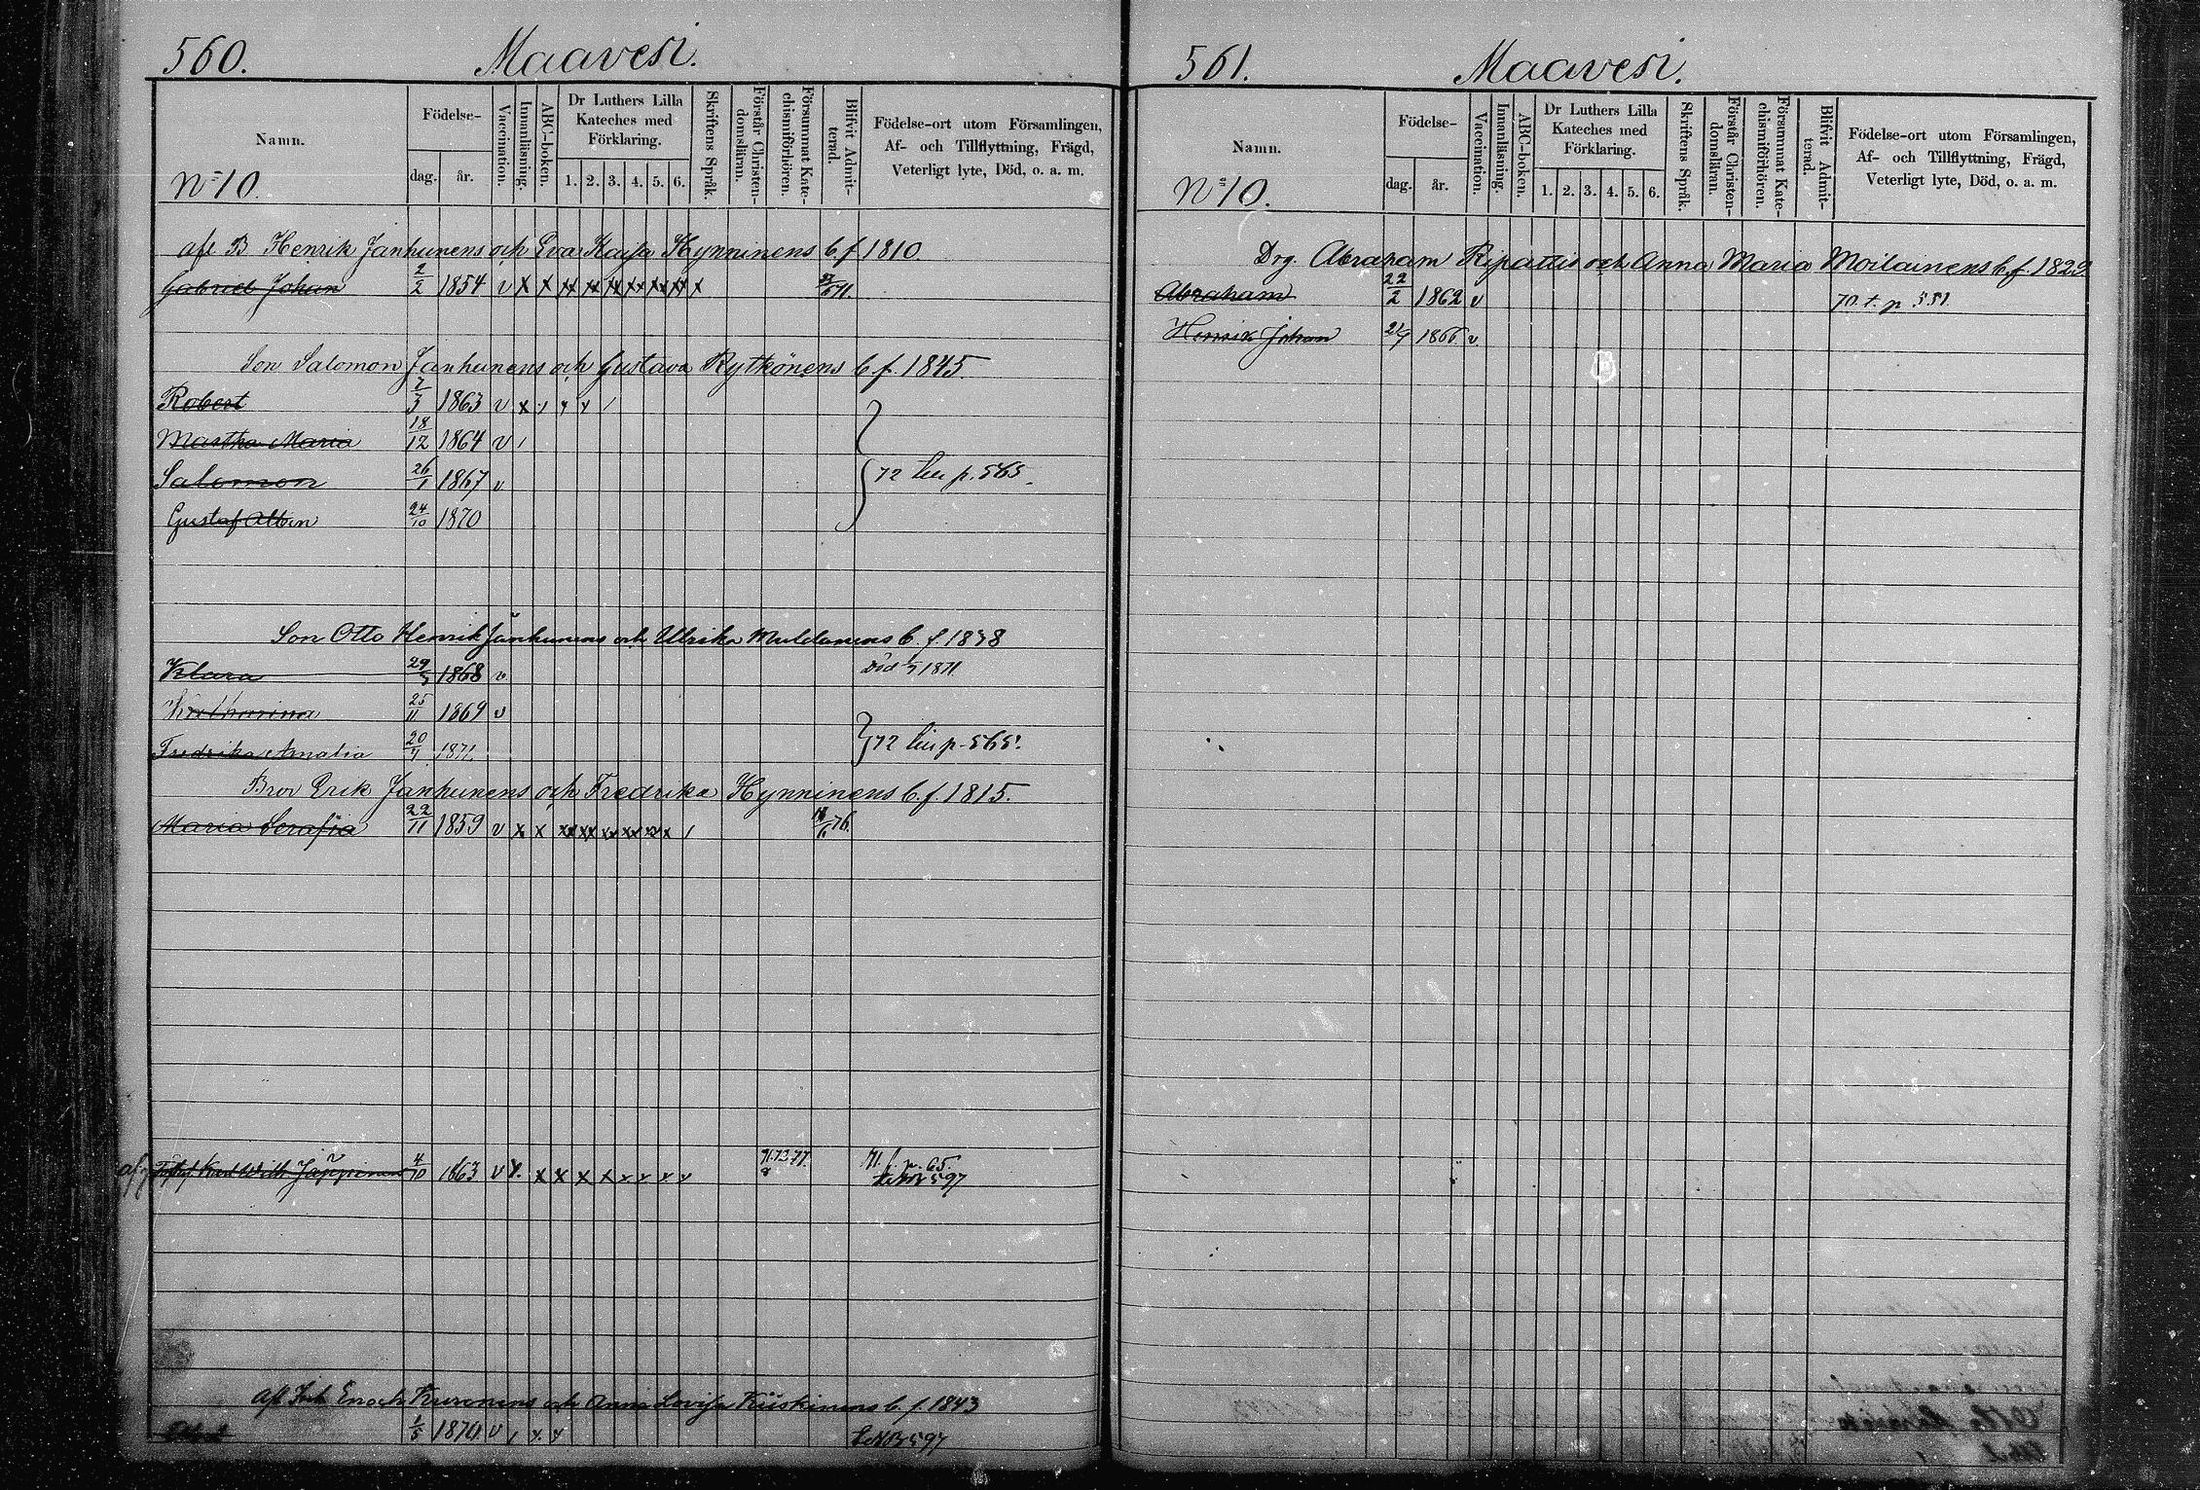 560. Maavesi.
Namn.
Födelse-
dag. år.
Vaccination.
Innanläsning.
ABC-boken.
Dr Luthers Lilla Kateches med Förklaring.
1. 2. 3. 4. 5. 6.
Skriftens Språk.
Förstår Christendomsläran.
Försummat Katechismiförhören.
Blifvit Admitterad.
Födelse-ort utom Församlingen,
Af- och Tillflyttning, Frägd,
Veterligt lyte, Död, o. a. m.
N:o 10.
afl B Henrik Janhunens och Eva Kaisa Hynninens b. f. 1810
Gabriel Johan 2/2 1854 v x x xx xx xx xx xx xx x
Son Salomon Janhunens och Gustava Rytkönens b. f. 1845.
Robert 7/3 1863 v x
Martha Maria 18/12 1864 v
Salomon 26/1 1867 v 72 p. 565.
Gustaf Albin 24/10 1870
Son Otto Henrik Janhunens och Ulrika b. f. 1838
Klara 29/5 1868 v Död 1871.
Katharina 25/11 1869 v
Fredrika Amalia 20/4 1871. 72 p. 565.
Bror Erik Janhunens och Fredrika Hynninens b. f. 1815.
Maria Serafia 22/11 1859 v x x xx xx xx xx xx x 76.
Wilh Jäppinen 4/10 1863 v x x x x x x x x 71.73.77. 71. f. p. 65.
597
Enoch Kuronens och Anna Lovisa Kiiskinens b. f. 1843
1/5 1870 v 597
561. Maavesi.
Namn.
Födelse-
dag. år.
Vaccination.
Innanläsning.
ABC-boken.
Dr Luthers Lilla Kateches med Förklaring.
1. 2. 3. 4. 5. 6.
Skriftens Språk.
Förstår Christendomsläran.
Försummat Katechismiförhören.
Blifvit Admitterad.
Födelse-ort utom Församlingen,
Af- och Tillflyttning, Frägd,
Veterligt lyte, Död, o. a. m.
N:o 10.
Drg. Abraham Ripattis och Anna Maria Moilainens b. f. 1822
Abraham 22/2 1862 v 70. t. p 551.
Henrik Johan 21/7 1866 v.